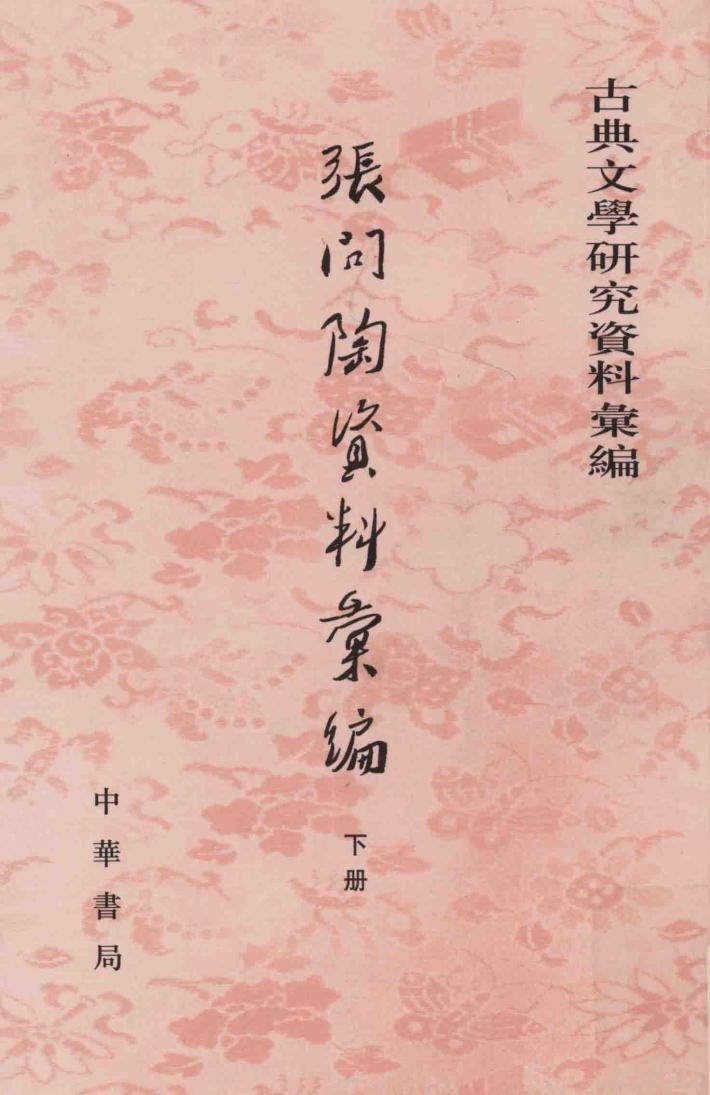 古典文學研究資料彙編
張問陶資料彙編
下册
中華書局